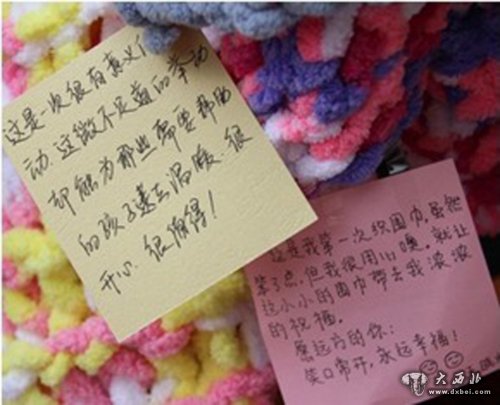 这是一次很有意义活
动.这微不足道的举动
却能为那些需要帮助
的孩子送去温暖.很
开心.很值得!
这是我第一次织围巾,虽然
笨了点,但我很用心哦,就让
这小小的围巾带去我浓浓
的祝福.
愿远方的你:
笑口常开,永远幸福!
大西北
www.dxbei.com